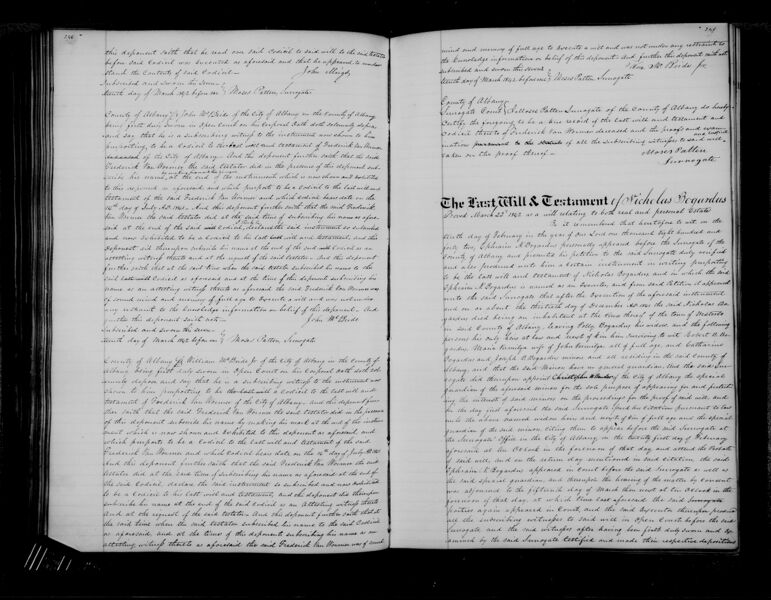 this deponent saith that he read over said Codicil to said will to the said testator
before said Codicil was executed as aforesaid and that he appeared to under-
stand the Contents of said Codicil
John Mayo
Subscribed and sworn this Seven
teenth day of March 1842 before me Moses Patten Surrogate
County of Albany ss John McBride of the City of Albany in the County of Albany
being first duly sworn in Open Court on his Corporal oath doth solemnly depose
and say that he is a subscribing witness to the instrument now shown to him
purporting to be a Codicil to the last will and testament of Frederick Van Wormer
deceased of the City of Albany. And the deponent further saith that the said
Frederick Van Wormer the said testator did in the presence of this deponent subs-
cribe his name at the end of the instrument which is now shown and exhibited
to this deponent as aforesaid and which purports to be a Codicil to the last will and
testament of the said Frederick Van Wormer and which codicil bears date on the
16th day of July AD 1841. And this deponent further saith that the said Frederick
Van Wormer the said testator did at the said time of subscribing his name as afore-
said at the end of the said Codicil, declare the said instrument so subscribed
and now exhibited to be a Codicil to his last will and testament, and this
deponent did thereupon subscribe his name at the end of the said Codicil as an
attesting witness thereto and at the request of the said testator. And this deponent
further saith that at the said time when the said testator subscribed his name to the
said Codicil as aforesaid and at the time of this deponent subscribing his
name as an attesting witness thereto as aforesaid the said Frederick Van Wormer was
of sound mind and memory of full age to Execute a will and was not under
any restraint to the knowledge information or belief of this deponent. And
further this deponent saith not
John McBride
Subscribed and sworn this Seven
teenth day of March 1842 before me Moses Patten Surrogate
County of Albany ss William McBride Jr of the City of Albany in the County of
Albany being first duly sworn in Open Court on his Corporal oath doth sol-
emnly depose and say that he is a subscribing witness to the instrument now
shown to him purporting to be a Codicil to the last will and
testament of Frederick Van Wormer of the City of Albany, and the deponent fur-
ther saith that the said Frederick Van Wormer the said testator did in the presence
of this deponent subscribe his name by making his mark at the end of the instru-
ment which is now shown and exhibited to this deponent as aforesaid, and
which purports to be a Codicil to the last will and testament of the said
Frederick Van Wormer and which Codicil bears date on the 16th day of July AD 1841
And this deponent further saith that the said Frederick Van Wormer the said
testator did at the said time of subscribing his name as aforesaid at the end of
the said Codicil, declare the said instrument so subscribed and now exhibited
to be a Codicil to his last will and testament, and this deponent did thereupon
subscribe his name at the end of the said Codicil as an attesting witness thereto
and at the request of the said testator. And this deponent further saith that at
the said time when the said testator subscribed his name to the said Codicil
as aforesaid, and at the time of this deponent subscribing his name as an
attesting witness thereto as aforesaid the said Frederick Van Wormer was of sound
mind and memory of full age to execute a will and was not under any restraint to
the knowledge information or belief of this deponent. And further this deponent saith not
Wm McBride Jr
Subscribed and sworn this Seven
teenth day of March 1842 before me Moses Patten Surrogate
County of Albany
Surrogate Court I Moses Patten Surrogate of the County of Albany do hereby
Certify the foregoing to be a true record of the last will and testament and
Codicil thereto of Frederick Van Wormer deceased and the proofs and exami-
nation of all the subscribing witnesses to said will and codicil
taken on the proof thereof
Moses Patten
Surrogate
The Last Will & Testament of Nicholas Bogardus
Proved March 23d 1842 as a will relating to both real and personal Estate
Be it remembered that heretofore to wit on the
tenth day of February in the year of our Lord one thousand Eight hundred and
forty two, Ephraim A Bogardus personally appeared before the Surrogate of the
County of Albany and presented his petition to the said Surrogate duly verified
and also produced unto him a certain instrument in writing purporting
to be the last will and testament of Nicholas Bogardus and in which the said
Ephraim A Bogardus is named as an Executor, and from said Petition it appeared
unto the said Surrogate that after the Execution of the aforesaid instrument
and on or about the thirtieth day of December AD 1841 the said Nicholas Bo-
gardus died being an inhabitant at the time thereof of the town of
in said County of Albany, leaving Polly Bogardus his widow, and the following
persons his only heirs at law and next of kin him surviving to wit Robert A Bo-
gardus, Maria wife of John all of full age, and Catharine
Bogardus and Joseph A Bogardus minors and all residing in the said County of
Albany, and that the said Minors have no general guardian. And the said Sur-
rogate did thereupon appoint Christopher of the City of Albany the special
guardian of the aforesaid minors for the sole purpose of appearing for and protect-
ing the interest of said minors on the proceedings for the proof of said will, and
on the day first aforesaid the said Surrogate issued his Citation pursuant to law
unto the above named widow heirs and next of kin of full age and the special
guardian of the said minors, citing them to appear before the said Surrogate at
the Surrogates Office in the City of Albany, on the twenty first day of February
aforesaid at ten OClock in the forenoon of that day and attend the Probate
of said will, and on the return day mentioned in said Citation, the said
Ephraim A Bogardus appeared in Court before the said Surrogate as well as
the said special guardian, and thereupon the hearing of the matter by consent
was adjourned to the fifteenth day of March then next at ten OClock in the
forenoon of that day, at which time last aforesaid the said
parties again appeared in Court, and the said Executor thereupon produced
all the subscribing witnesses to said will in Open Court before the said
Surrogate and the said witnesses after having been first duly sworn and Ex-
amined by the said Surrogate Certified and made their respective depositions